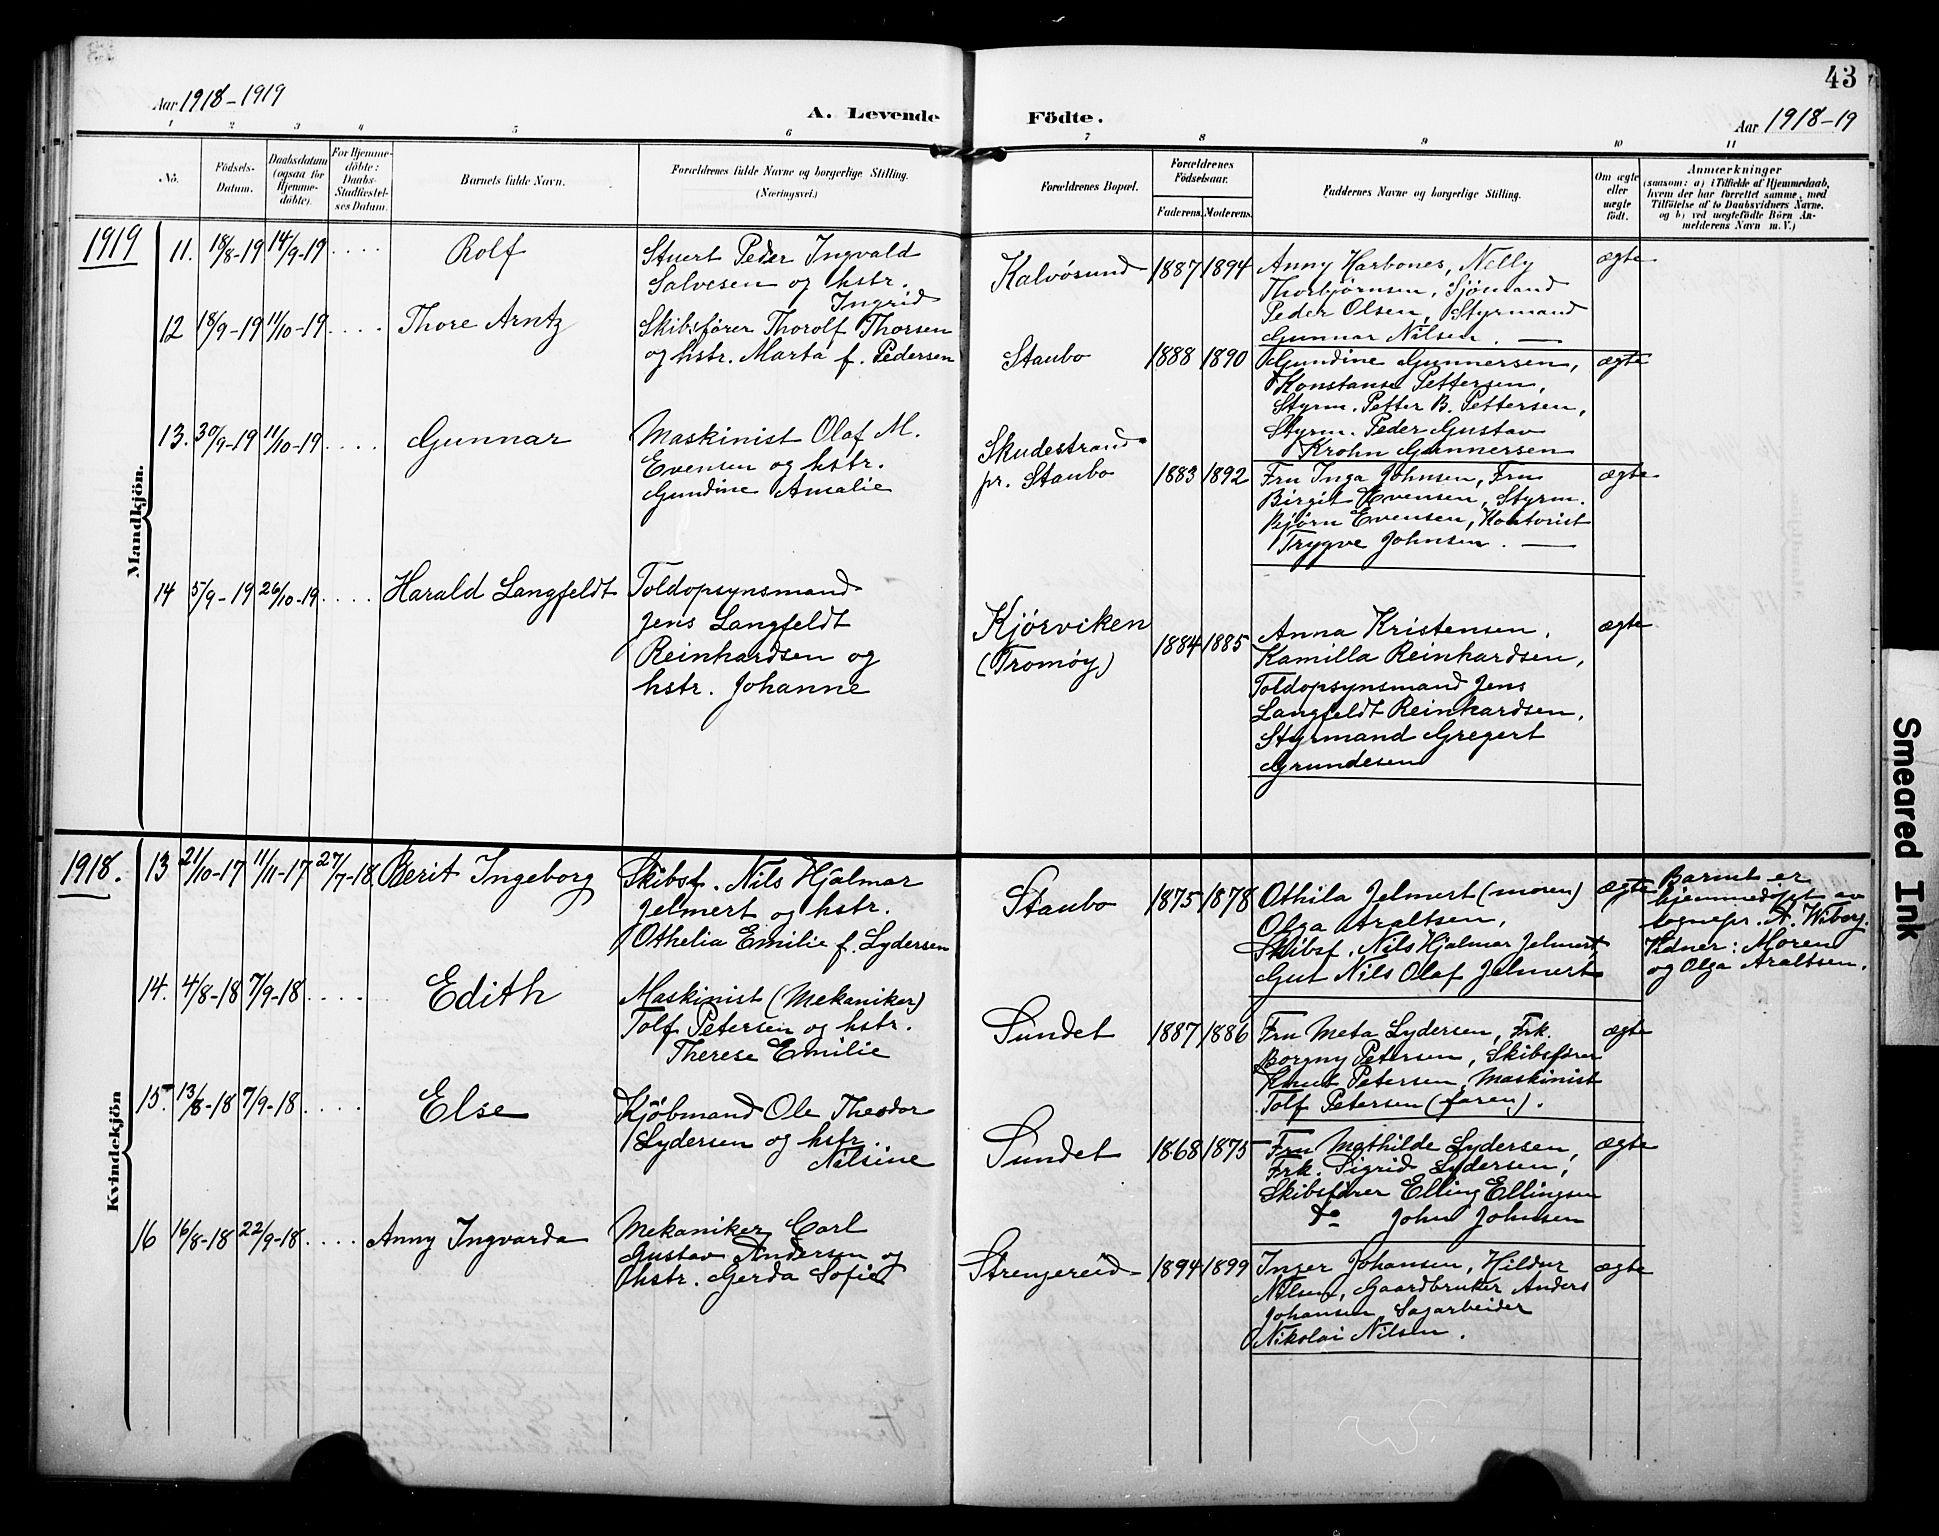 43
Aar 1918-1919
A. Levende Födte.
Aar 1918-19
1 2 3 4 5 6 7 8 9 10 11
No.
Födsels-
Datum.
Daabsdatum
(ogsaa for
Hjemme-
döbte).
For Hjemme-
döbte:
Daabs-
Stadfæstel-
ses Datum.
Barnets fulde Navn.
Forældrenes fulde Navne og borgerlige Stilling.
(Næringsvei.)
Forældrenes Bopæl.
Forældrenes
Födselsaar.
Faderens. Moderens.
Faddernes Navne og borgerlige Stilling.
Om ægte
eller
uægte
födt.
Anmærkninger
(saasom: a) i Tilfælde af Hjemmedaab,
hvem der har forrettet samme, med
Tilföielse af to Daabsvidners Navne,
og b) ved uegtefödte Börn An-
melderens Navn m. V.)
Mandkjön.
1919
11. 18/8-19 14/9-19 . . . . Rolf
Stuert Peder Ingvald
Salvesen og hstr.
Ingrid
Kalvøsund 1887 1894
Anny Harbones, Nelly
Thorbjørnsen, Sjømand
Peder Olsen, Styrmand
Gunnar Nilsen. —
ægte
12 18/9-19 11/10-19 . . . . Thore Arntz
Skibsfører Thorolf Thorsen
og hstr. Marta f. Pedersen
Staubo 1888 1890
Gundine Gunnersen,
Konstanse Pettersen,
Styrm. Petter B. Pettersen,
Styrm. Peder Gustav
Krohn Gunnersen
ægte
13. 30/9-19 11/10-19 . . . . Gunnar
Maskinist Olaf M.
Evensen og hstr.
Gundine Amalie
Skudestrand
pr. Staubo 1883 1892
Fru Inga Johnsen, Fru
Birgit Evensen, Styrm.
Bjørn Evensen, Kontorist
Trygve Johnsen. —
ægte
14 5/9-19 26/10-19 . . . . Harald Langfeldt
Toldopsynsmand
Jens Langfeldt
Reinhardsen og
hstr. Johanne
Kjørviken
(Tromøy) 1884 1885
Anna Kristensen,
Kamilla Reinhardsen,
Toldopsynsmand Jens
Langfeldt Reinhardsen,
Styrmand Gregert
Grundesen
ægte
Kvindekjön
1918.
13 21/10-17 11/11-17 27/7-18 Berit Ingeborg
Skibsf. Nils Hjalmar
Jelmert og hstr.
Othelia Emilie f. Lydersen
Staubo 1875 1878
Othila Jelmert (moren)
Olga Araltsen,
Skibsf. Nils Hjalmar Jelmert,
Gut Nils Olaf Jelmert
ægte
Barnet er
hjemmedøpt av
sognepr. A. Wiborg.
Vidner: Moren
og Olga Araltsen.
14. 4/8-18 7/9-18 . . . . Edith
Maskinist (Mekaniker)
Tolf Petersen og hstr.
Therese Emilie
Sundet 1887 1886
Fru Meta Lydersen, Frk.
Borgny Petersen, Skibsfører
Knut Petersen, Maskinist
Tolf Petersen (faren).
ægte
15. 13/8-18 7/9-18 . . . . Else
Kjøbmand Ole Theodor
Lydersen og hstr.
Nilsine
Sundet 1868 1875
Fru Mathilde Lydersen,
Frk. Sigrid Lydersen,
Skibsfører Elling Ellingsen
do John Johnsen
ægte
16 16/8-18 22/9-18 . . . . Anny Ingvarda
Mekaniker Carl
Gustav Andersen og
hstr. Gerda Sofie
Strengereid 1894 1899
Inger Johansen, Hildur
Nilsen, Gaardbruker Anders
Johansen, Sagarbeider
Nikolai Nilsen.
ægte
Smeared Ink